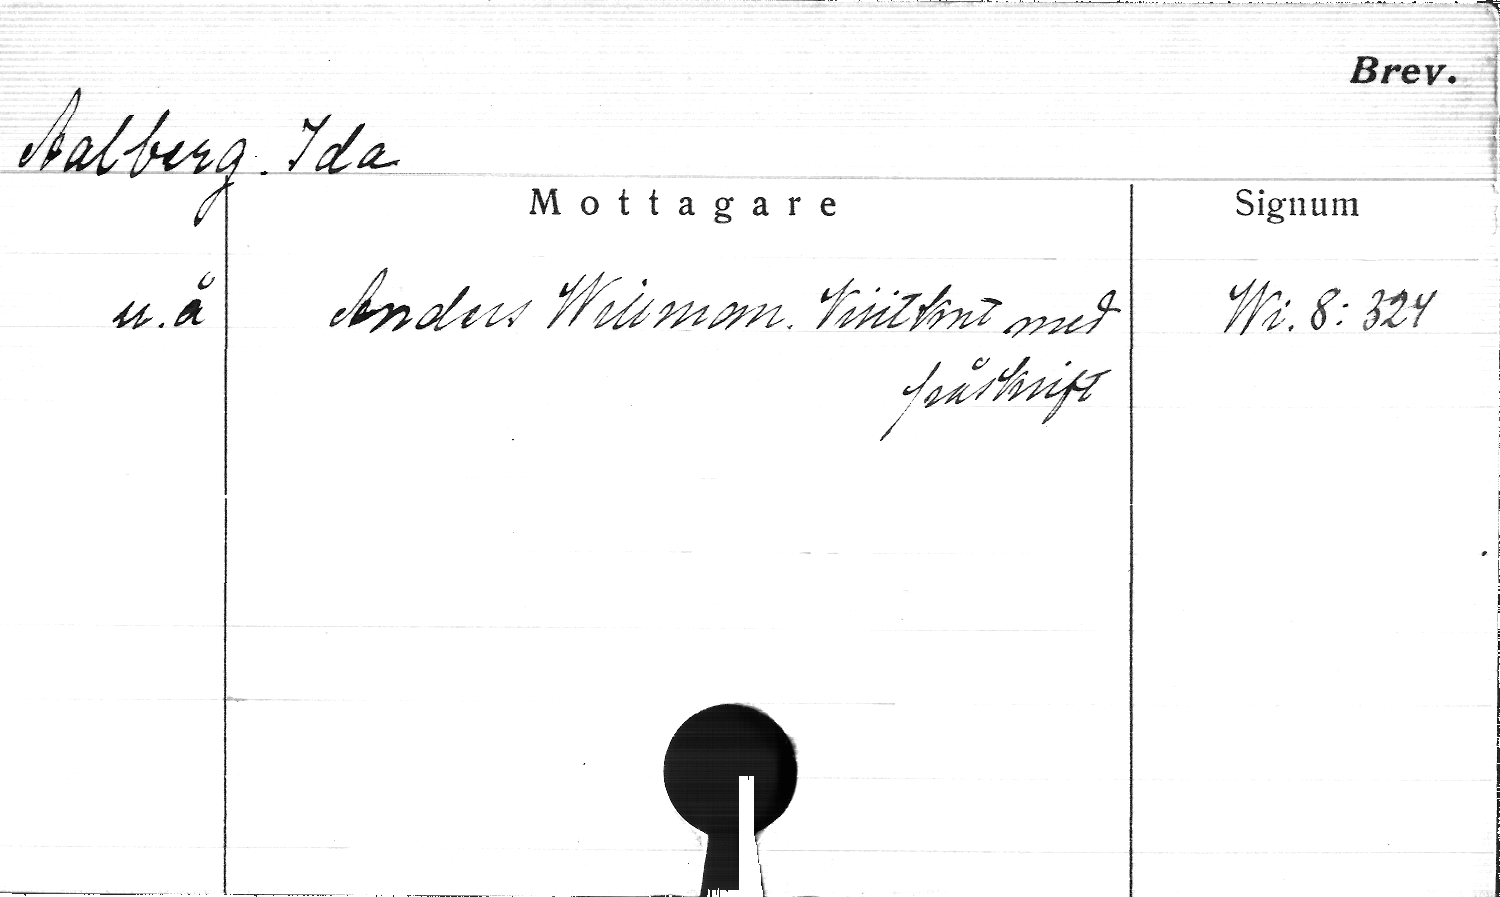 Brev.
Aalberg. Ida
Mottagare
Signum
u.å Anders Willman. Visitkort med Wi. 8: 324
påskrift